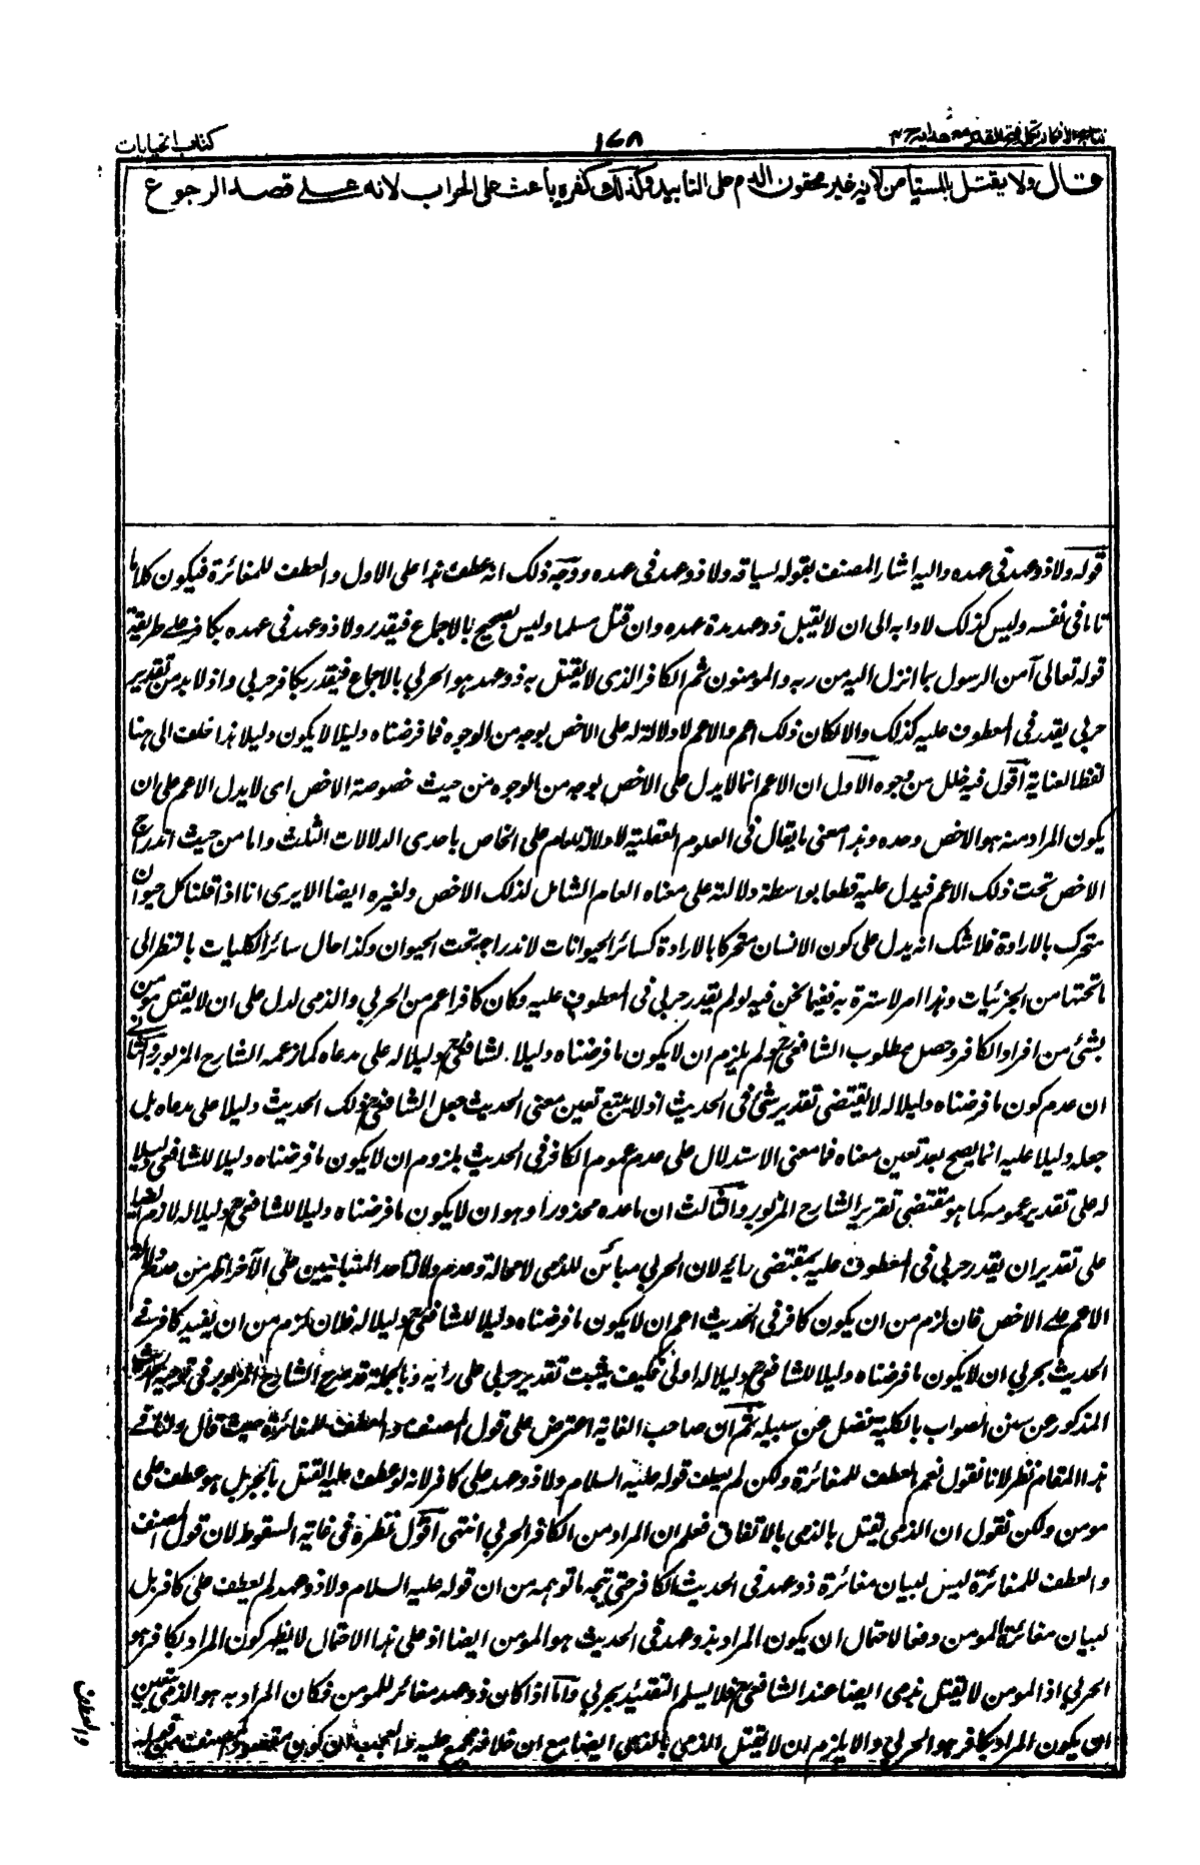 نتائج الافكار تكملة فتح القدير مع هداية ج ٤
١٦٨
كتاب الجنايات
قال ولا يقتل بالمستأمن لانه غير محقون الدم على التابيد وكذلك كفره باعث على الحراب لانه على قصد الرجوع
قوله ولا ذو عهد في عهده واليه اشار المصنف بقوله لسياقه ولا ذو عهد في عهده ووجه ذلك انه عطف هذا على الاول والعطف للمغائرة فيكون كلاما
تاما في نفسه وليس كذلك لادائه الى ان لا يقتل ذو عهد مدة عهده وان قتل مسلما وليس بصحيح بالاجماع فيقدر ولا ذو عهد في عهده بكافر على طريقة
قوله تعالى آمن الرسول بما انزل اليه من ربه والمومنون ثم الكافر الذى لا يقتل به ذو عهد هو الحربي بالاجماع فيقدر بكافر حربي واذ لا بد من تقدير
حربي يقدر في المعطوف عليه كذلك والا لكان ذلك اعم والاعم لا دلالة له على الاخص بوجه من الوجوه فما فرضناه دليلا لا يكون دليلا هذا خلف الى هنا
لفظ العناية اقول فيه خلل من وجوه الاول ان الاعم انما لا يدل على الاخص بوجه من الوجوه من حيث خصوصة الاخص اى لا يدل الاعم على ان
يكون المراد منه هو الاخص وحده وهذا معنى ما يقال في العلوم العقلية لا دلالة للعام على الخاص باحدى الدلالات الثلث واما من حيث اندراج
الاخص تحت ذلك الاعم فيدل عليه قطعا بواسطة دلالته على معناه العام الشامل لذلك الاخص ولغيره ايضا الا يرى انا اذا قلنا كل حيوان
متحرك بالارادة فلا شك انه يدل على كون الانسان متحركا بالارادة كسائر الحيوانات لاندراجه تحت الحيوان وكذا حال سائر الكليات بالنظر الى
ما تحتها من الجزئيات وهذا امر لا سترة به ففيما نحن فيه لو لم يقدر حربي في المعطوف عليه وكان كافر اعم من الحربي والذمى لدل على ان لا يقتل مومن
بشئ من افراد الكافر وحصل مطلوب الشافعي رح ولم يلزم ان لا يكون ما فرضناه دليلا للشافعي رح دليلا له على مدعاه كما زعمه الشارح المزبور والثاني
ان عدم كون ما فرضناه دليلا له لا يقتضى تقدير شئ في الحديث اذ لا يتبع تعين معنى الحديث جعل الشافعي رح ذلك الحديث دليلا على مدعاه بل
جعله دليلا عليه انما يصح بعد تعين معناه فما معنى الاستدلال على عدم عموم الكافر في الحديث بلزوم ان لا يكون ما فرضناه دليلا للشافعي دليلا
له على تقدير عمومه كما هو مقتضى تقرير الشارح المزبور والثالث ان ما عده محذورا وهو ان لا يكون ما فرضناه دليلا للشافعي رح دليلا له لازم ايضا
على تقدير ان يقدر حربي في المعطوف عليه بمقتضى رائه لان الحربي مبائن للذمى لا محالة وعدم دلالة احد المتبائنين على الآخر اظهر من عدم دلالة
الاعم على الاخص فان لزم من ان يكون كافر في الحديث اعم ان لا يكون ما فرضناه دليلا للشافعي رح دليلا له فلان يلزم من ان يقيد كافر في
الحديث بحربي ان لا يكون ما فرضناه دليلا للشافعي رح دليلا له اولى فكيف يثبت تقدير حربي على رائه وبالجملة قد خرج الشارح المزبور في توجيه
المذكور عن سنن الصواب بالكلية فضل عن سبيله ثم ان صاحب الغاية اعترض على قول المصنف والعطف للمغائرة حيث قال ولنا في
هذا المقام نظر لانا نقول نعم العطف للمغائرة ولكن لم يعطف قوله عليه السلام ولا ذو عهد على كافر لانه لو عطف عليه لقتل بالجر بل هو عطف على
مومن ولكن نقول ان الذمى يقتل بالذمى بالاتفاق فعلم ان المراد من الكافر الحربي انتهى اقول نظره في غاية السقوط لان قول المصنف
والعطف للمغائرة ليس لبيان مغائرة ذو عهد في الحديث للكافر حتى يتجه ما توهمه من ان قوله عليه السلام ولا ذو عهد لم يعطف على كافر بل
لبيان مغائرة المومن دفعا لاحتمال ان يكون المراد بذو عهد في الحديث هو المومن ايضا اذ على هذا الاحتمال لا يظهر كون المراد بكافر هو
الحربي اذ المومن لا يقتل بذمى ايضا عند الشافعي رح فلا يسلم التقييد بحربي واما اذا كان ذو عهد مغائر للمومن فكان المراد به هو الذمى يتعين
ان يكون المراد بكافر هو الحربي والا يلزم ان لا يقتل الذمى بالذمى ايضا مع ان خلافه مجمع عليه ثم العجب ان كون مقصود المصنف من قوله
والعطف